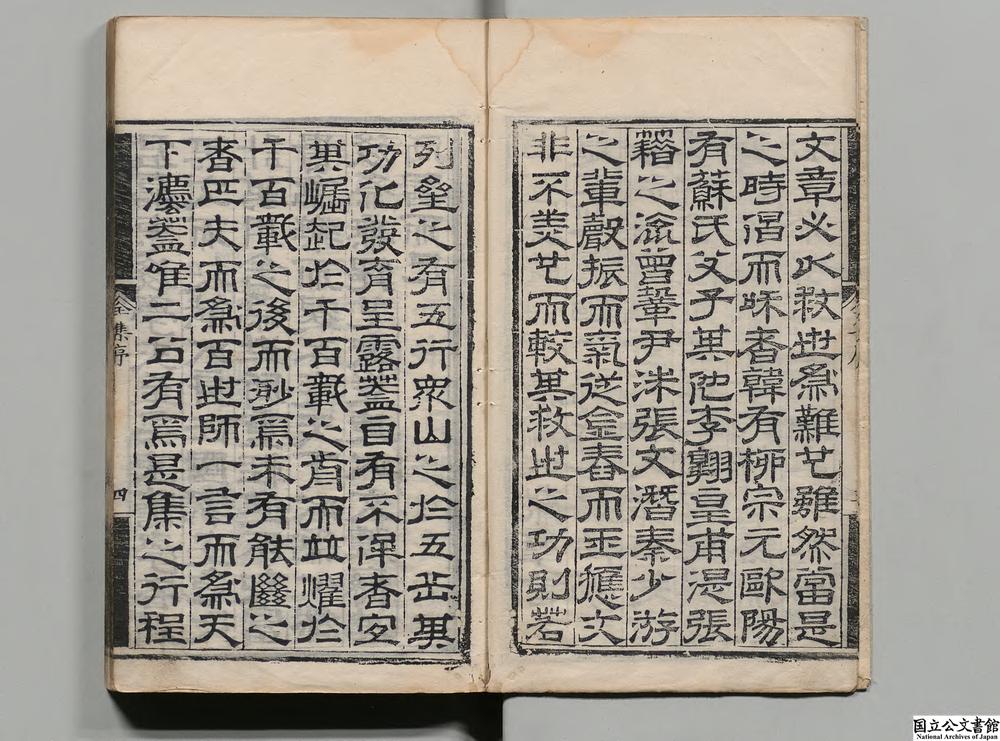 文章必以救世爲難也雖然當是
之時倡而和者韓有柳宗元歐陽
有蘇氏父子其他李翺皇甫湜張
籍之流曾鞏尹洙張文潛秦少游
之輩聲振而氣從金舂而玉應文
非不美也而較其救世之功則若
列星之有五行衆山之於五岳其
功化發育呈露蓋自有不侔者宜
其崛起於千百載之前而並燿於
千百載之後而眇焉未有能繼之
者匹夫而爲百世師一言而爲天
下灋蓋唯二公有焉是集之行程
全集序
四
国立公文書館
National Archives of Japan